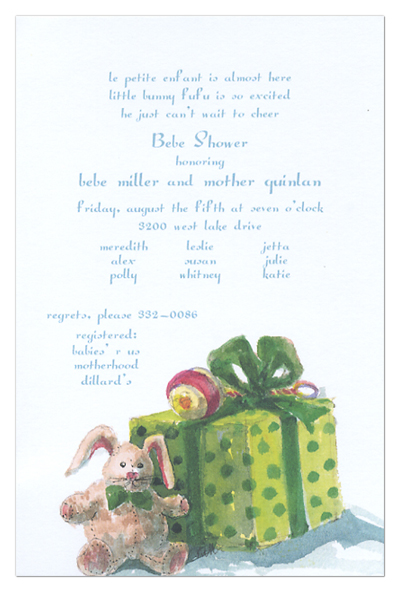 le petite enfant is almost here
little bunny fufu is so excited
he just can't wait to cheer
Bebe Shower
honoring
bebe miller and mother quinlan
friday, august the fifth at seven o'clock
3200 west lake drive
meredith leslie jetta
alex susan julie
polly whitney katie
regrets, please 332-0086
registered:
babies' r us
motherhood
dillard's